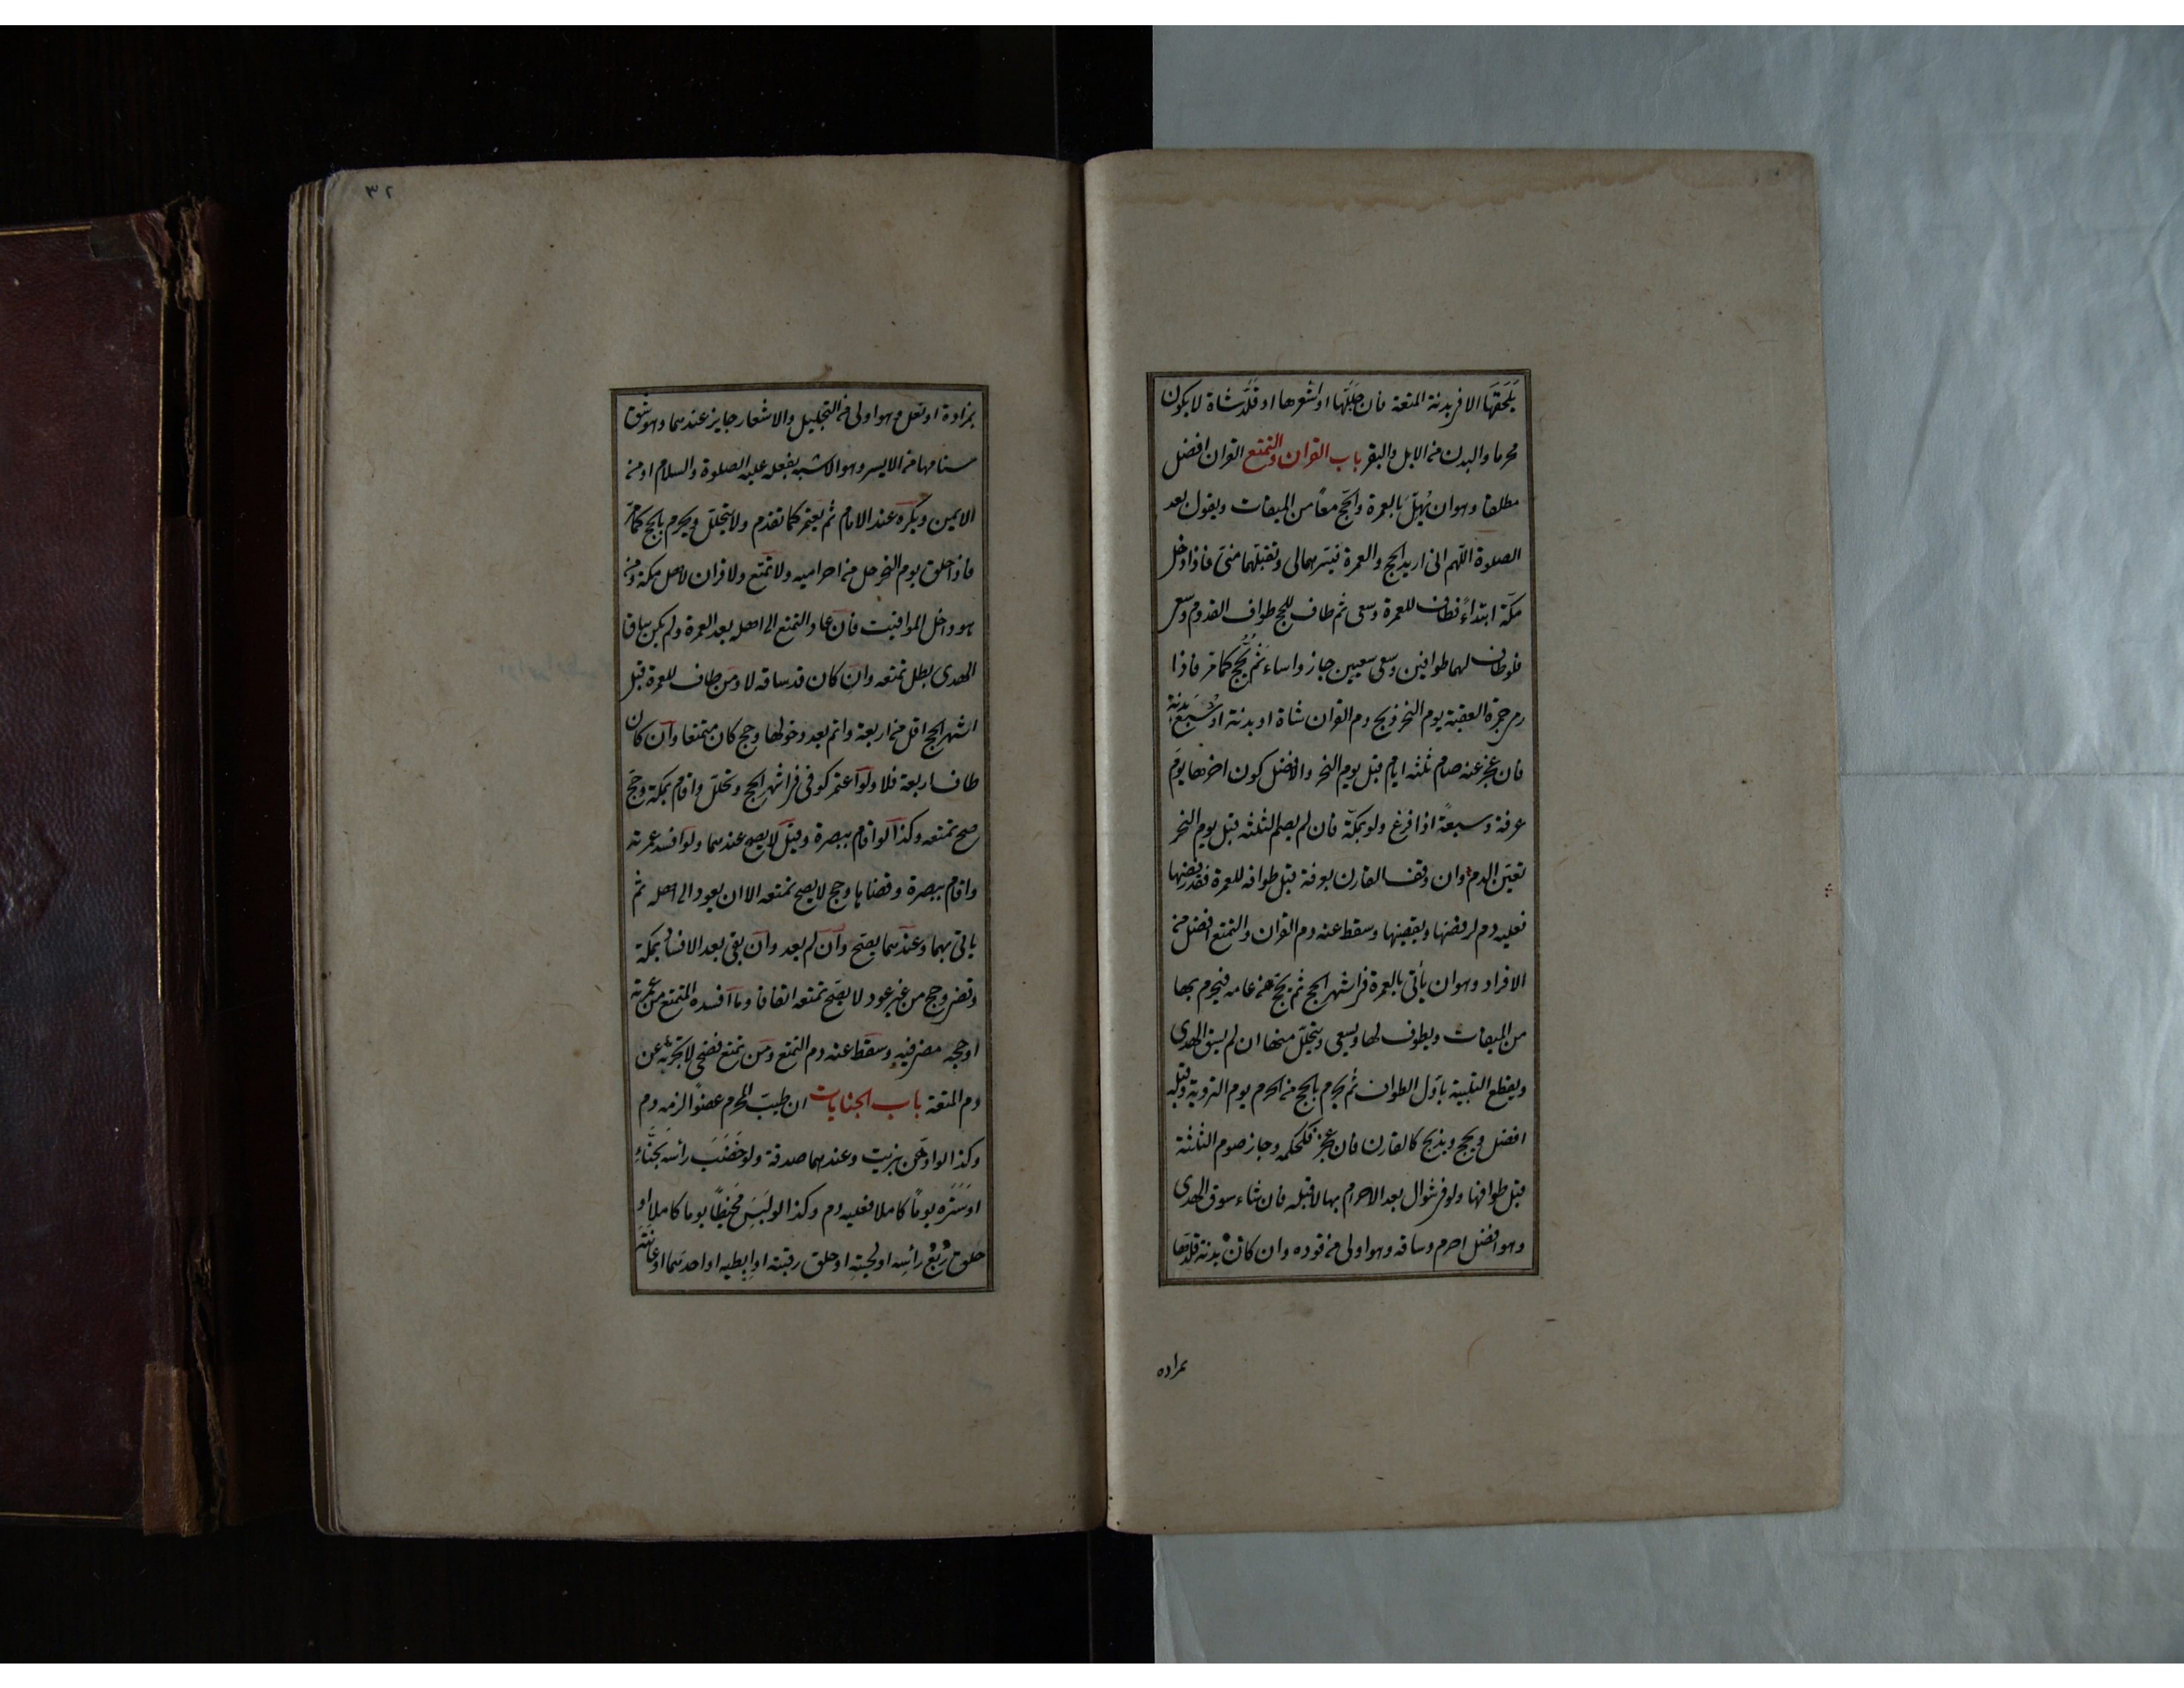 يلحقها الا فى بدنة المتعة فان جللها او اشعرها او قلد شاة لا يكون
محرما والبدن من الابل والبقر باب القران والتمتع القران افضل
مطلقا وهو ان يهل بالعمرة والحج معا من الميقات ويقول بعد
الصلوة اللهم انى اريد الحج والعمرة فيسرهما لى وتقبلهما منى فاذا دخل
مكة ابتداء فطاف للعمرة وسعى ثم طاف للحج طواف القدوم وسعى
فلو طاف لهما طوافين وسعى سعيين جاز واساء ثم يحج كما مر فاذا
رمى جمرة العقبة يوم النحر ذبح دم القران شاة او بدنة او سبع بدنة
فان عجز عنه صام ثلثه ايام قبل يوم النحر والافضل كون اخرها يوم
عرفة وسبعة اذا فرغ ولو بمكة فان لم يصم الثلثه قبل يوم النحر
تعين الدم وان وقف القارن بعرفة قبل طوافه للعمرة فقد رفضها
فعليه دم لرفضها ويقضيها وسقط عنه دم القران والتمتع افضل من
الافراد وهو ان يأتى بالعمرة فى اشهر الحج ثم يحج من عامه فيحرم بها
من الميقات ويطوف لها ويسعى ويتحلل منها ان لم يسق الهدى
ويقطع التلبية باول الطواف ثم يحرم بالحج من الحرم يوم التروية وقبله
افضل ويحج ويذبح كالقارن فان عجز فكحكمه وجاز صوم الثلثة
قبل طوافها ولو فى شوال بعد الاحرام بها لا قبله فان شاء سوق الهدى
وهو افضل احرم وساقه وهو اولى من قوده وان كان بدنة قلدها
بمزاده
٣٢
بمزادة او نعل وهو اولى من التجليل والاشعار جايز عندهما وهو شق
سنامها من الايسر وهو الاشبه بفعله عليه الصلوة والسلام او من
الايمن ويكره عند الامام ثم يعتمر كما تقدم ولا يتحلل ويحرم بالحج كما مر
فاذا حلق يوم النحر حل من احراميه ولا تمتع ولا قران لاهل مكة ومن
هو داخل المواقيت فان عاد المتمتع الى اهله بعد العمرة ولم يكن ساق
الهدى بطل تمتعه وان كان قد ساقه لا ومن طاف للعمرة قبل
اشهر الحج اقل من اربعة واتم بعد دخولها وحج كان متمتعا وان كان
طاف اربعة فلا ولو اعتمر كوفى فى اشهر الحج وتحلل واقام بمكة وحج
صح تمتعه وكذا لو اقام ببصرة وقيل لا يصح عندهما ولو افسد عمرته
واقام ببصرة وقضاها وحج لا يصح تمتعه الا ان يعود الى اهله ثم
ياتى بهما وعندهما يصح وان لم يعد وان بقى بعد الافساد بمكة
وقضى وحج من غير عود لا يصح تمتعه اتفاقا وما افسده المتمتع من عمرته
او حجه مضى فيه وسقط عنه دم التمتع ومن تمتع فضحى لا تجزيه عن
دم المتعة باب الجنايات ان طيب المحرم عضوا لزمه دم
وكذا لو ادهن بزيت وعندهما صدقة ولو خضب رأسه بحناء
او ستره يوما كاملا فعليه دم وكذا لو لبس مخيطا يوما كاملا او
حلق ربع رأسه او لحيته او حلق رقبته او ابطيه او احدهما او عانته